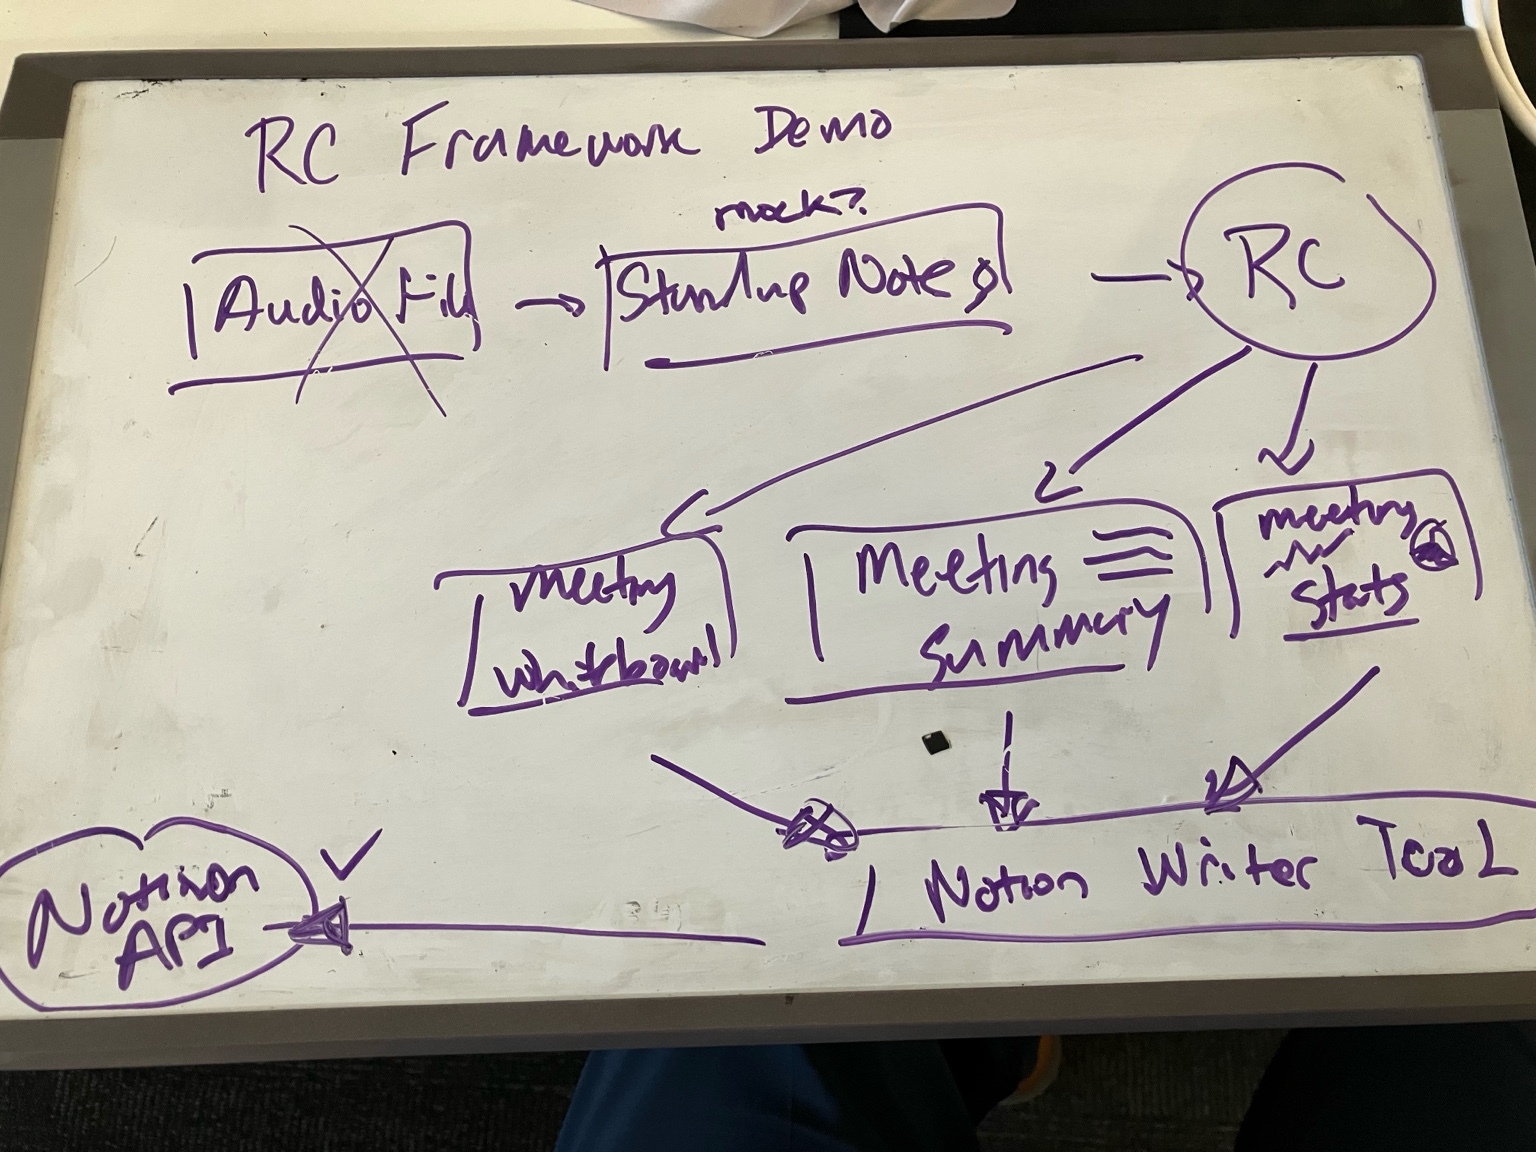 RC Framework Demo
mock?
Audio File
Standup Notes
RC
Meeting
Whiteboard
Meeting
Summary
Meeting
Stats
Notion Writer Tool
Notion
API